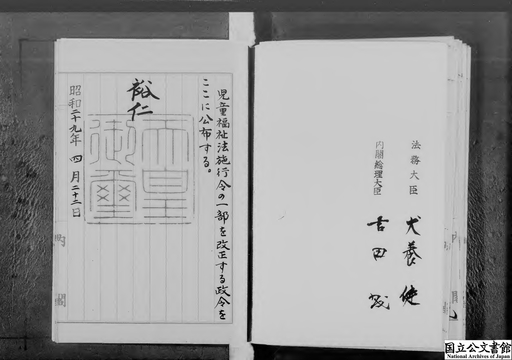 児童福祉法施行令の一部を改正する政令を
ここに公布する。
裕仁
天皇
御璽
昭和二十九年四月二十二日
内閣
法務大臣 犬養健
内閣総理大臣 吉田茂
国立公文書館
National Archives of Japan